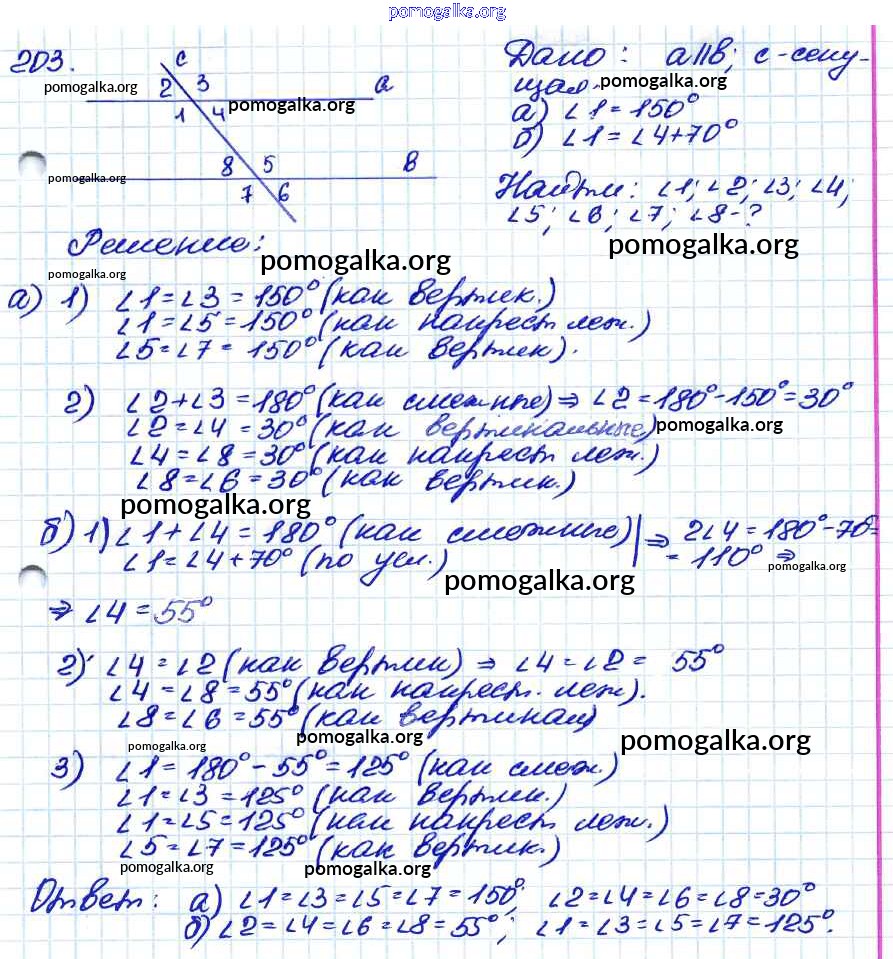 pomogalka.org
203.
c
2 3
a
pomogalka.org
pomogalka.org
1 4
8 5
в
pomogalka.org
7 6
Дано: a||в; c-секу-
щая.
pomogalka.org
а) ∠1=150°
б) ∠1=∠4+70°
Найти: ∠1; ∠2; ∠3; ∠4;
∠5; ∠6; ∠7; ∠8-?
pomogalka.org
Решение:
pomogalka.org
pomogalka.org
а) 1) ∠1=∠3=150° (как вертик.)
∠1=∠5=150° (как накрест леж.)
∠5=∠7=150° (как вертик).
2) ∠2+∠3=180° (как смежные) ⇒ ∠2=180°-150°=30°
∠2=∠4=30° (как вертикальные)
pomogalka.org
∠4=∠8=30° (как накрест леж.)
∠8=∠6=30° (как вертик.)
pomogalka.org
б) 1) ∠1+∠4=180° (как смежные) | ⇒ 2∠4=180°-70°=
∠1=∠4+70° (по усл.) =110° ⇒
pomogalka.org
pomogalka.org
⇒ ∠4=55°
2) ∠4=∠2 (как вертик) ⇒ ∠4=∠2= 55°
∠4=∠8=55° (как накрест. леж).
∠8=∠6=55° (как вертикал)
pomogalka.org
pomogalka.org
pomogalka.org
3) ∠1=180°-55°=125° (как смеж.)
∠1=∠3=125° (как вертик.)
∠1=∠5=125° (как накрест леж.)
∠5=∠7=125° (как вертик.)
pomogalka.org
pomogalka.org
Ответ: а) ∠1=∠3=∠5=∠7=150°; ∠2=∠4=∠6=∠8=30°
б) ∠2=∠4=∠6=∠8=55°; ∠1=∠3=∠5=∠7=125°.